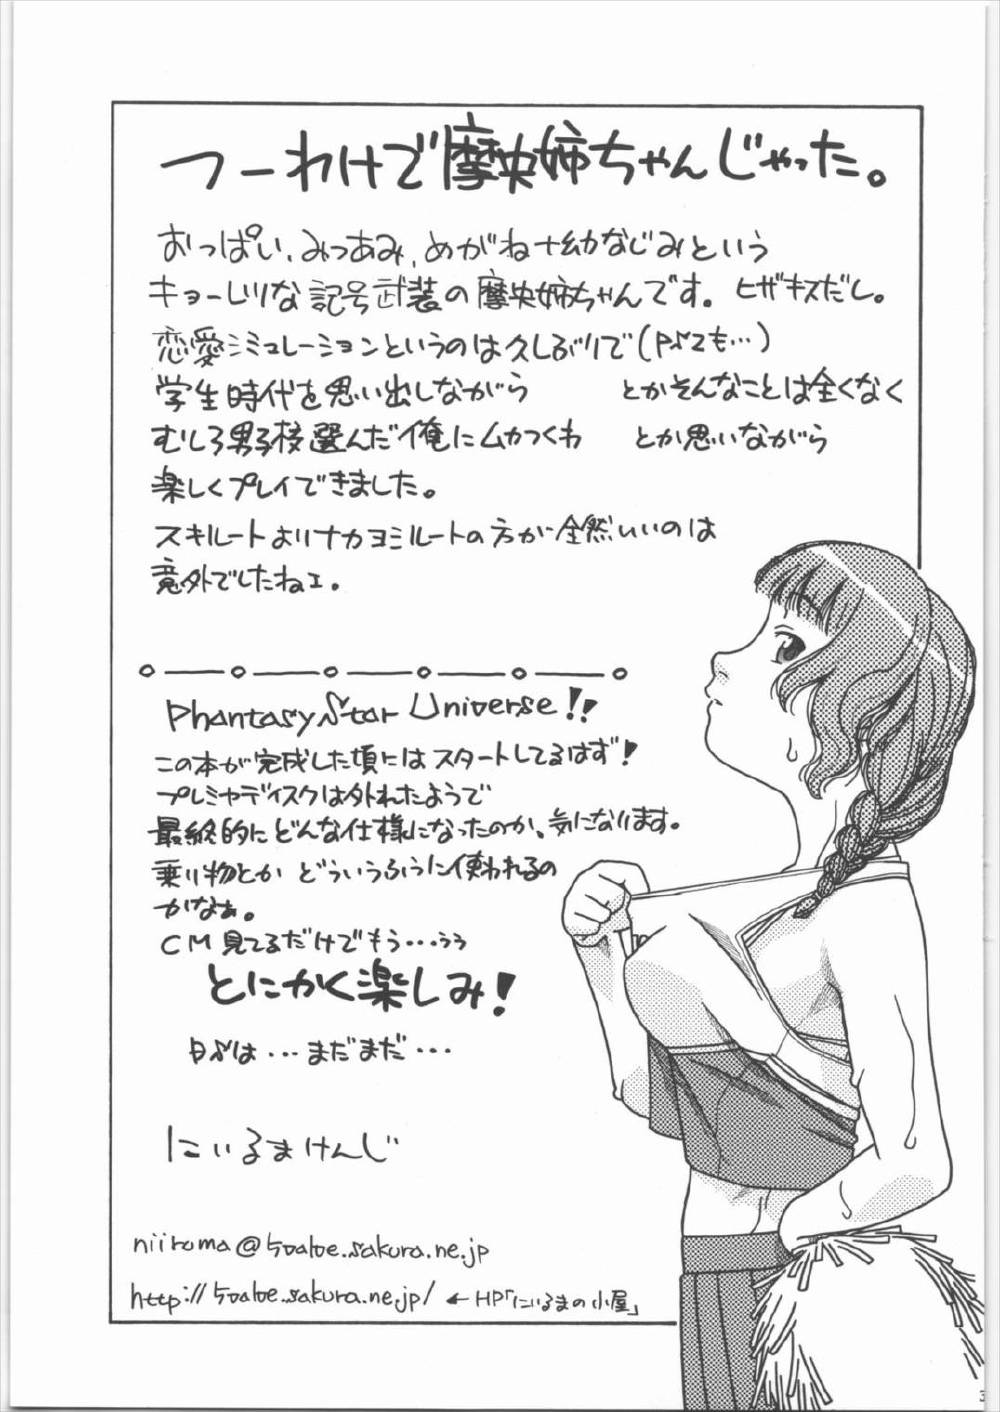 つーわけで摩央姉ちゃんじゃった。
おっぱい、みつあみ、めがね+幼なじみという
キョーレツな記号武装の摩央姉ちゃんです。ヒザキスだし。
恋愛シミュレーションというのは久しぶりで(PS2も…)
学生時代を思い出しながら とかそんなことは全くなく
むしろ男子校選んだ俺にムカつくわ とか思いながら
楽しくプレイできました。
スキルートよりナカヨシルートの方が全然いいのは
意外でしたねェ。
Phantasy Star Universe!!
この本が完成した頃にはスタートしてるはず!
プレミヤディスクは外れたようで
最終的にどんな仕様になったのか、気になります。
乗り物とか どういうふうに使われるの
かなぁ。
CM見てるだけでもう…うう
とにかく楽しみ!
は…まだまだ…
にぃるまけんじ
niiruma@
.sakura.ne.jp
http://
.sakura.ne.jp/ ←HP「にぃるまの小屋」